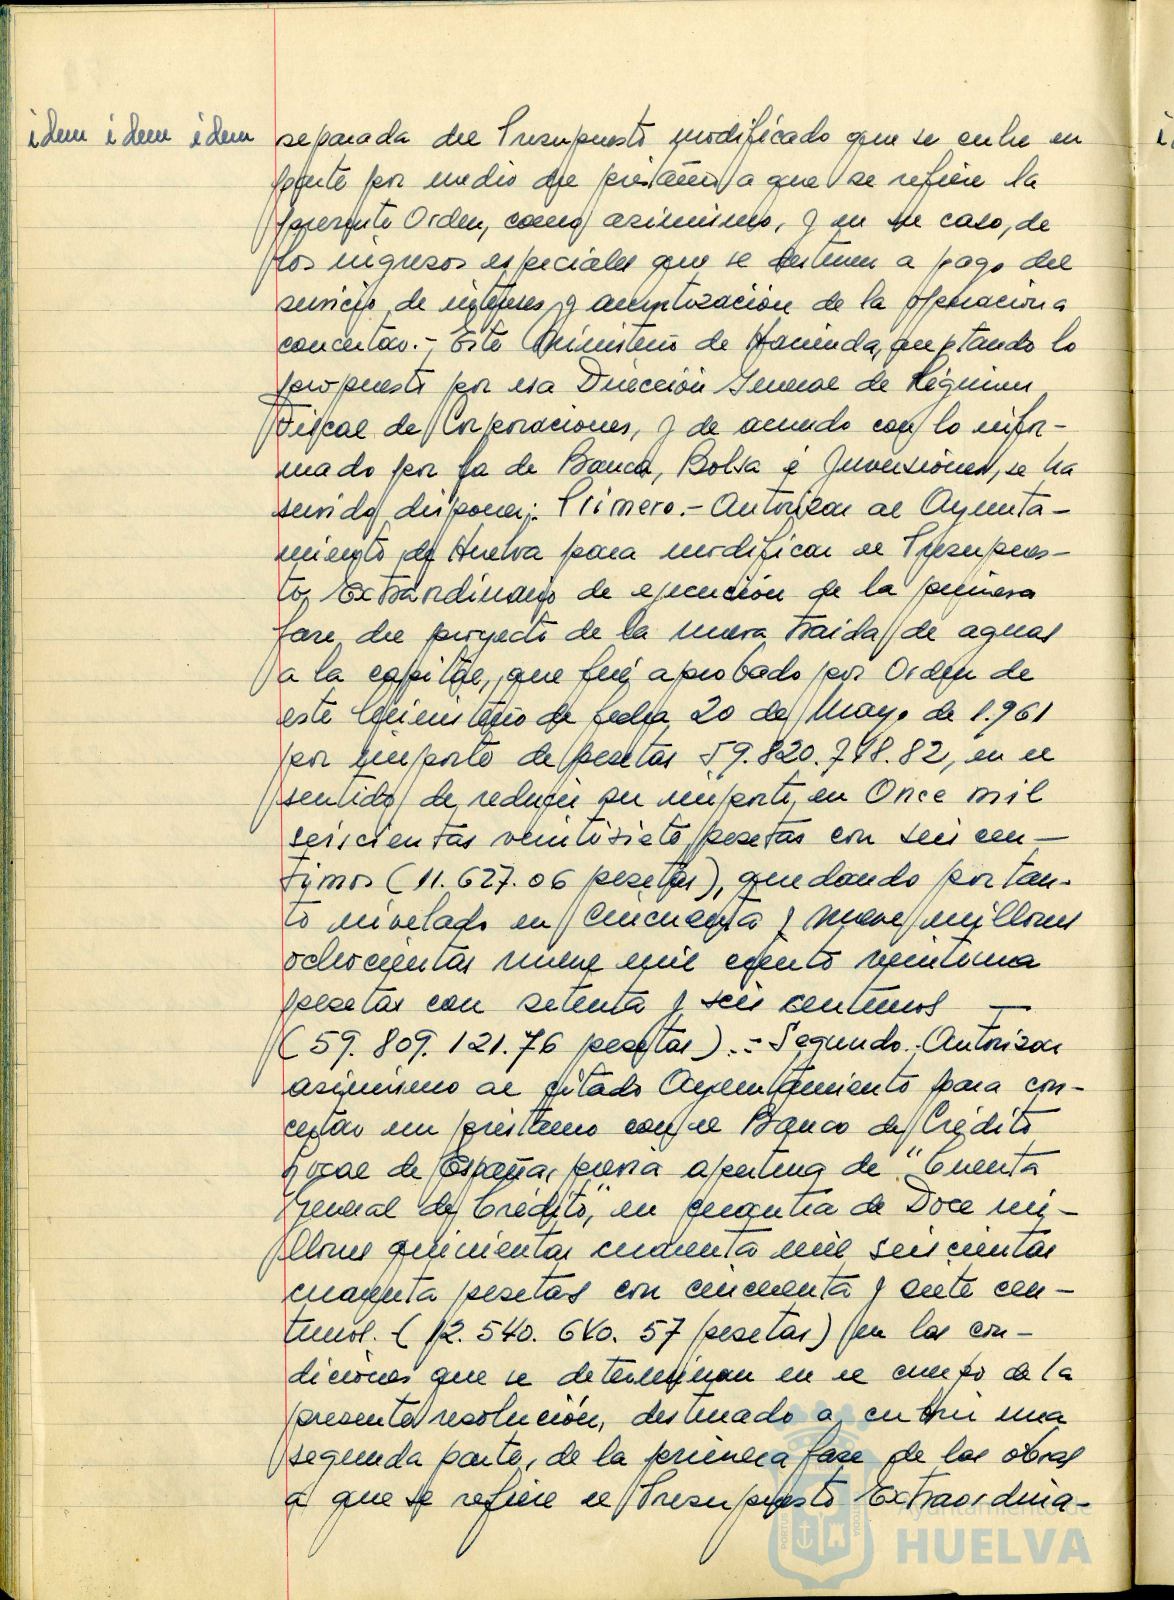 idem idem idem
separada del Presupuesto modificado que se cubre en
parte por medio del préstamo a que se refiere la
presente Orden, como asimismo, y en su caso, de
los ingresos especiales que se destinen a pago del
servicio de intereses y amortización de la operación a
concertar.- Este Ministerio de Hacienda, aceptando lo
propuesto por esa Dirección General de Régimen
Fiscal de Corporaciones, y de acuerdo con lo infor-
mado por la de Banca, Bolsa é Inversiones, se ha
servido disponer: Primero.- Autorizar al Ayunta-
miento de Huelva para modificar el Presupues-
to Extraordinario de ejecución de la primera
fase del proyecto de la nueva traida de aguas
a la capital, que fué aprobado por Orden de
este Ministerio de fecha 20 de Mayo de 1.961
por importe de pesetas 59.820.748.82, en el
sentido de reducir su importe en Once mil
seiscientas veintisiete pesetas con seis cen-
timos (11.627.06 pesetas), quedando por tan-
to nivelado en Cincuenta y nueve millones
ochocientas nueve mil ciento veintiuna
pesetas con setenta y seis centimos —
(59.809.121.76 pesetas).- Segundo.- Autorizar
asimismo al citado Ayuntamiento para con-
certar un préstamo con el Banco de Crédito
Local de España, previa apertura de "Cuenta
General de Crédito", en cuantia de Doce mi-
llones quinientas cuarenta mil seiscientas
cuarenta pesetas con cincuenta y siete cen-
timos. (12.540.640.57 pesetas) en las con-
diciones que se determinan en el cuerpo de la
presente resolución, destinado a cubrir una
segunda parte, de la primera fase de las obras
a que se refiere el Presupuesto Extraordina-
Ayuntamiento de
HUELVA